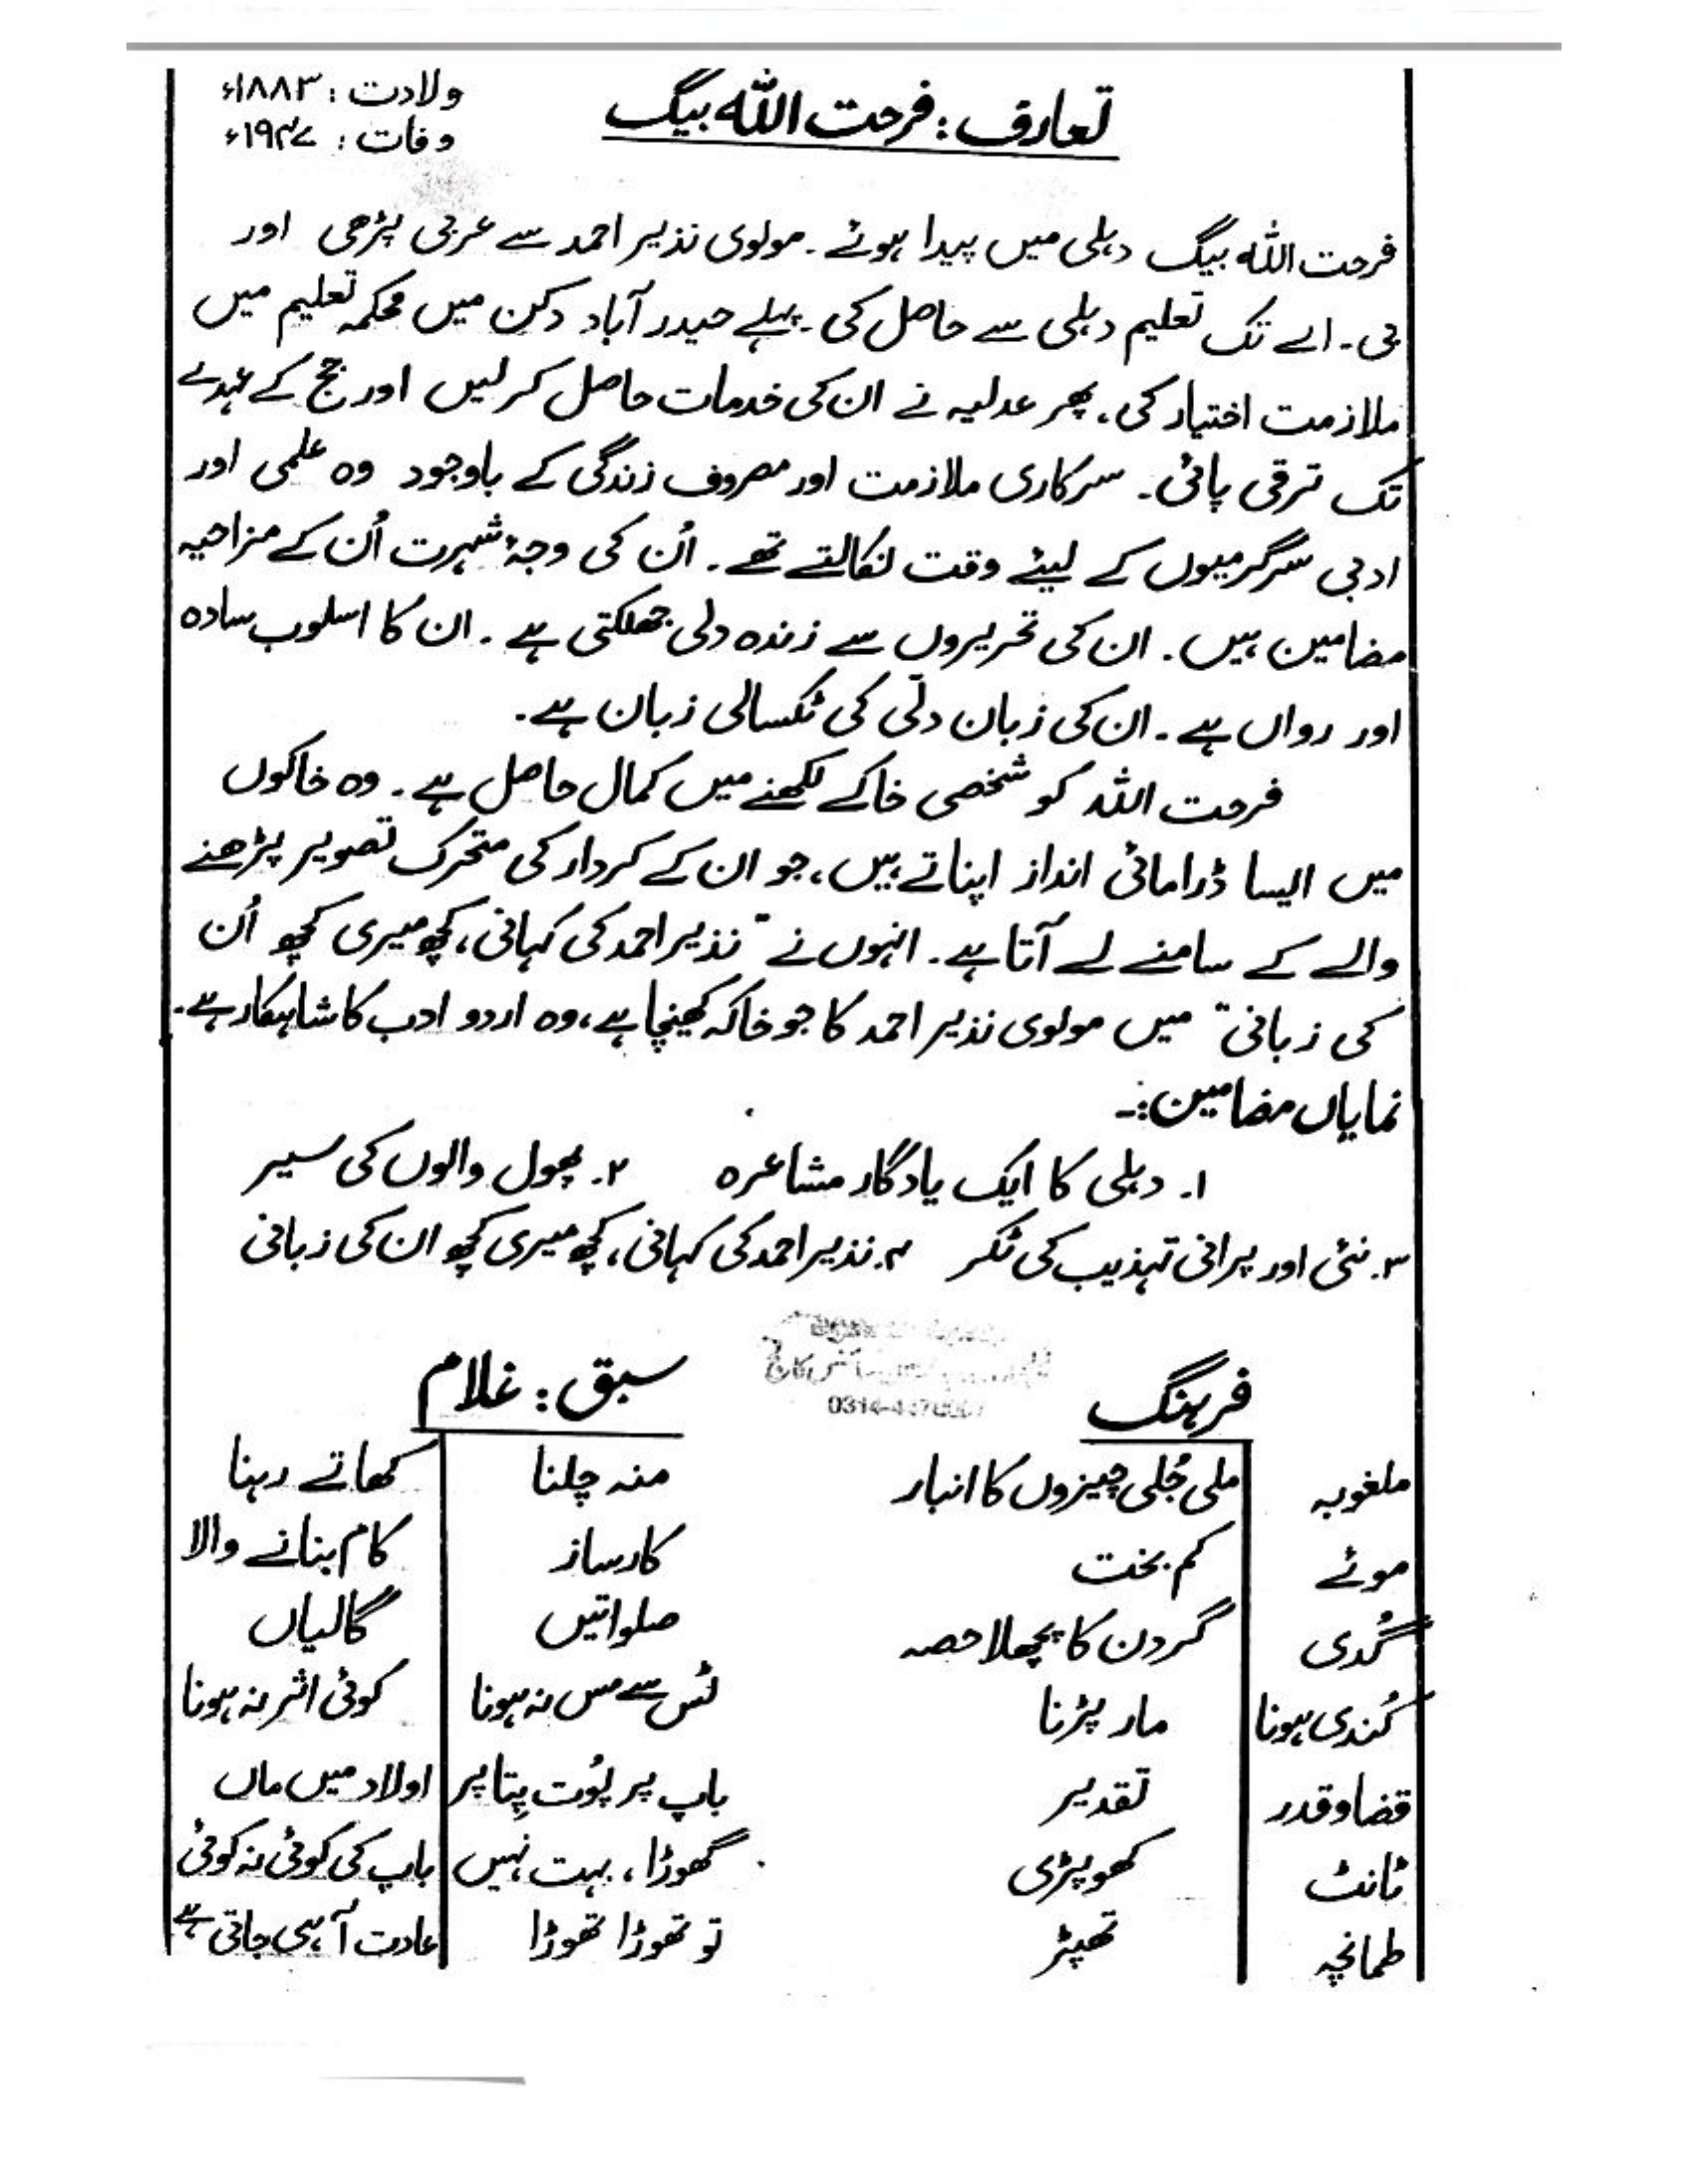 تعارف : فرحت اللہ بیگ
ولادت : ۱۸۸۳ء
وفات : ۱۹۴۷ء
فرحت اللہ بیگ دہلی میں پیدا ہوئے ۔ مولوی نذیر احمد سے عربی پڑھی اور
بی ۔ اے تک تعلیم دہلی سے حاصل کی ۔ پہلے حیدر آباد دکن میں محکمہ تعلیم میں
ملازمت اختیار کی ، پھر عدلیہ نے ان کی خدمات حاصل کر لیں اور جج کے عہدے
تک ترقی پائی ۔ سرکاری ملازمت اور مصروف زندگی کے باوجود وہ علمی اور
ادبی سرگرمیوں کے لیئے وقت نکالتے تھے ۔ اُن کی وجۂ شہرت اُن کے مزاحیہ
مضامین ہیں ۔ ان کی تحریروں سے زندہ دلی جھلکتی ہے ۔ ان کا اسلوب سادہ
اور رواں ہے ۔ ان کی زبان دلّی کی ٹکسالی زبان ہے ۔
فرحت اللہ کو شخصی خاکے لکھنے میں کمال حاصل ہے ۔ وہ خاکوں
میں ایسا ڈرامائی انداز اپناتے ہیں ، جو ان کے کردار کی متحرک تصویر پڑھنے
والے کے سامنے لے آتا ہے ۔ انہوں نے " نذیر احمد کی کہانی ، کچھ میری کچھ اُن
کی زبانی " میں مولوی نذیر احمد کا جو خاکہ کھینچا ہے ، وہ اردو ادب کا شاہکار ہے ۔
نمایاں مضامین :۔
۱۔ دہلی کا ایک یادگار مشاعرہ ۲۔ پھول والوں کی سیر
۳۔ نئی اور پرانی تہذیب کی ٹکر ۴۔ نذیر احمد کی کہانی ، کچھ میری کچھ ان کی زبانی
فرہنگ سبق : غلام
ملغوبہ ملی جُلی چیزوں کا انبار منہ چلنا کھاتے رہنا
موئے کم بخت کارساز کام بنانے والا
گُدی گردن کا پچھلا حصہ صلواتیں گالیاں
کُندی ہونا مار پڑنا ٹس سے مس نہ ہونا کوئی اثر نہ ہونا
قضا و قدر تقدیر باپ پر پُوت پِتا پر اولاد میں ماں
ٹانٹ کھوپڑی گھوڑا ، بہت نہیں باپ کی کوئی نہ کوئی
طمانچہ تھپڑ تو تھوڑا تھوڑا عادت آ ہی جاتی ہے